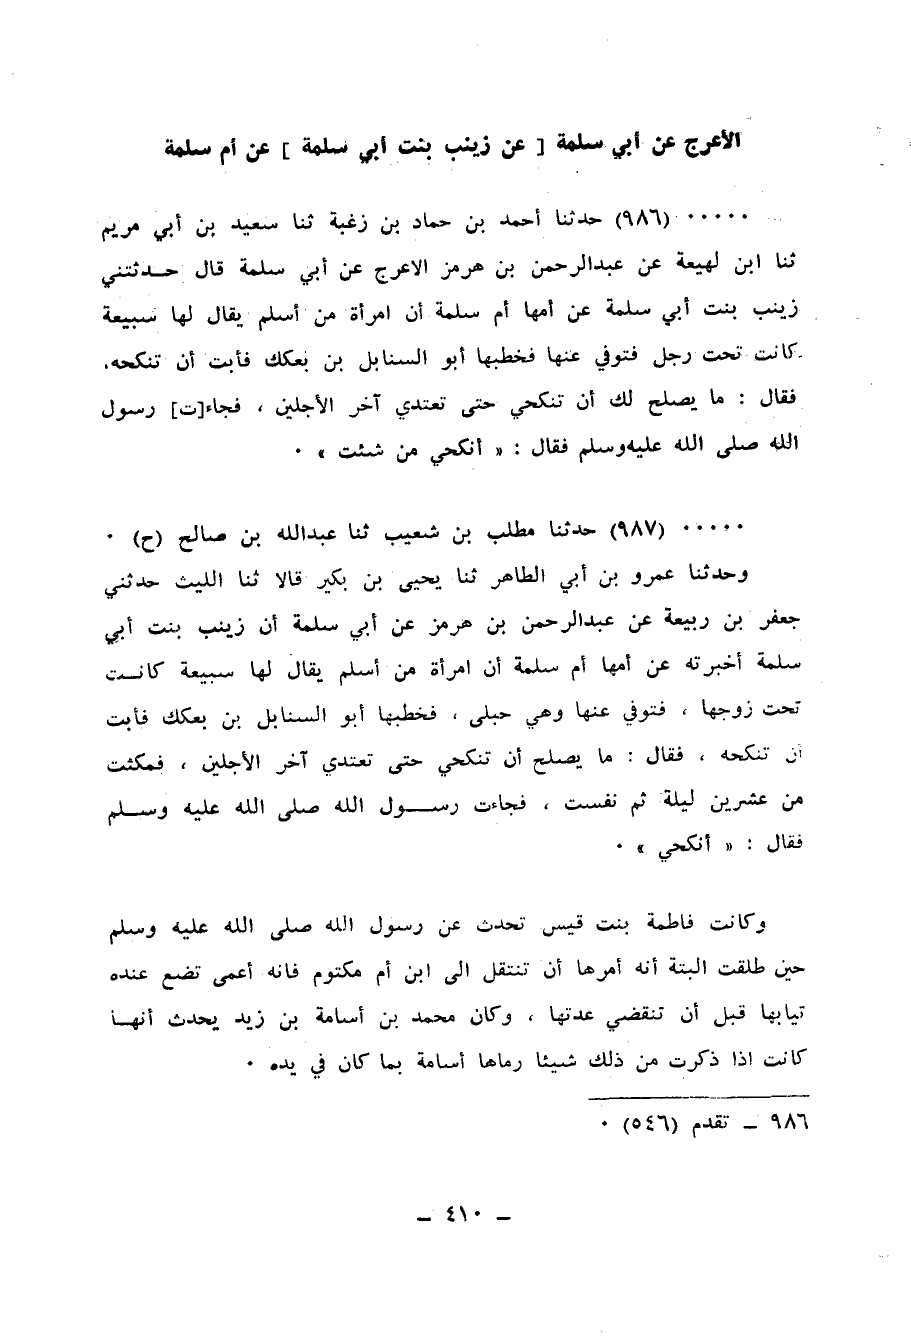 الأعرج عن أبي سلمة [ عن زينب بنت أبي سلمة ] عن أم سلمة
٠٠٠٠٠ (٩٨٦) حدثنا أحمد بن حماد بن زغبة ثنا سعيد بن أبي مريم
ثنا ابن لهيعة عن عبدالرحمن بن هرمز الاعرج عن أبي سلمة قال حـدثتني
زينب بنت أبي سلمة عن أمها أم سلمة أن امرأة من أسلم يقال لها سبيعة
كانت تحت رجل فتوفي عنها فخطبها أبو السنابل بن بعكك فأبت أن تنكحه،
فقال : ما يصلح لك أن تنكحي حتى تعتدي آخر الأجلين ، فجاء[ت] رسول
الله صلى الله عليه‌وسلم فقال : « أنكحي من شئت » ٠
٠٠٠٠٠ (٩٨٧) حدثنا مطلب بن شعيب ثنا عبدالله بن صالح (ح) ٠
وحدثنا عمرو بن أبي الطاهر ثنا يحيى بن بكير قالا ثنا الليث حدثني
جعفر بن ربيعة عن عبدالرحمن بن هرمز عن أبي سلمة أن زينب بنت أبي
سلمة أخبرته عن أمها أم سلمة أن امرأة من أسلم يقال لها سبيعة كانـت
تحت زوجها ، فتوفي عنها وهي حبلى ، فخطبها أبو السنابل بن بعكك فأبت
أن تنكحه ، فقال : ما يصلح أن تنكحي حتى تعتدي آخر الأجلين ، فمكثت
من عشرين ليلة ثم نفست ، فجاءت رســول الله صلى الله عليه وسـلم
فقال : « أنكحي » ٠
وكانت فاطمة بنت قيس تحدث عن رسول الله صلى الله عليه وسلم
حين طلقت البتة أنه أمرها أن تنتقل الى ابن أم مكتوم فانه أعمى تضع عنده
تيابها قبل أن تنقضي عدتها ، وكان محمد بن أسامة بن زيد يحدث أنهـا
كانت اذا ذكرت من ذلك شيئا رماها أسامة بما كان في يده ٠
٩٨٦ ــ تقدم (٥٤٦) ٠
ــ ٤١٠ ــ